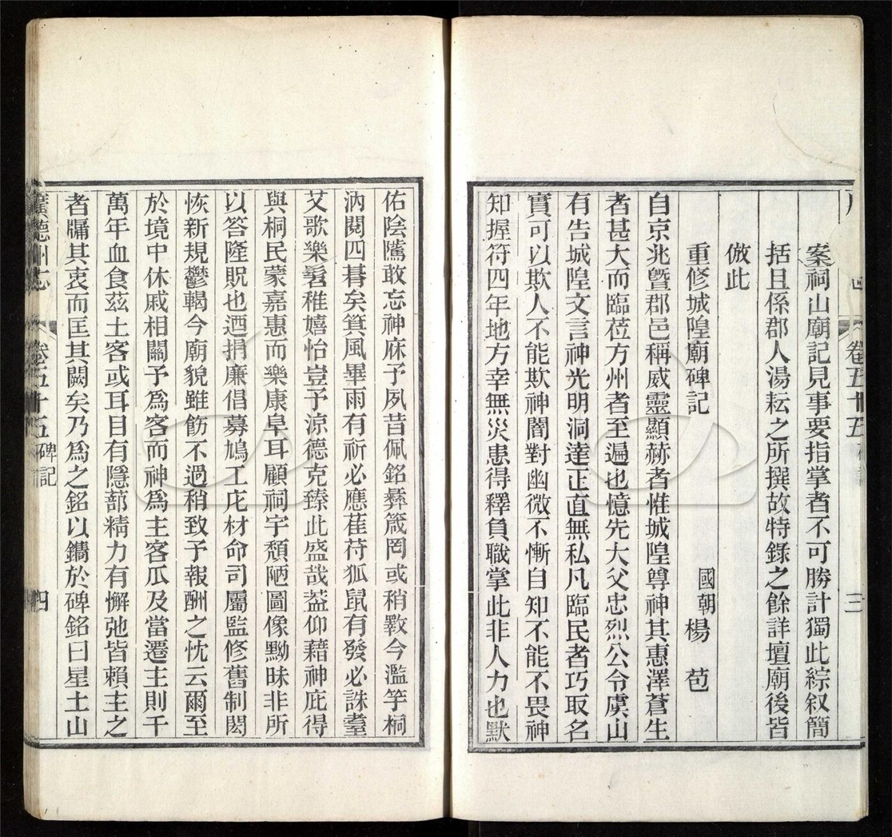 案祠山廟記見事要指掌者不可勝計獨此綜叙簡
括且係郡人湯耘之所撰故特錄之餘詳壇廟後皆
倣此
重修城隍廟碑記
國朝楊苞
自京兆曁郡邑稱威靈顯赫者惟城隍尊神其惠澤蒼生
者甚大而臨莅方州者至遍也憶先大父忠烈公令虞山
有告城隍文言神光明洞達正直無私凡臨民者巧取名
實可以欺人不能欺神闇對幽微不慚自知不能不畏神
知握符四年地方幸無災患得釋負職掌此非人力也默
卷五十五
三
佑陰隲敢忘神庥予夙昔佩銘彞箴罔或稍斁今濫竽桐
汭閱四朞矣箕風畢雨有祈必應萑苻狐鼠有發必誅耋
艾歌樂髫稚嬉怡豈予涼德克臻此盛哉葢仰藉神庇得
與桐民蒙嘉惠而樂康阜耳顧祠宇頽陋圖像黝昧非所
以答隆貺也迺捐廉倡募鳩工庀材命司屬監修舊制閎
恢新規鬱轕今廟貌雖飭不過稍致予報酬之忱云爾至
於境中休戚相關予爲客而神爲主客瓜及當遷主則千
萬年血食茲土客或耳目有隱蔀精力有懈弛皆賴主之
者牖其衷而匡其闕矣乃爲之銘以鐫於碑銘曰星土山
廣德州志
卷五十五
碑記
四